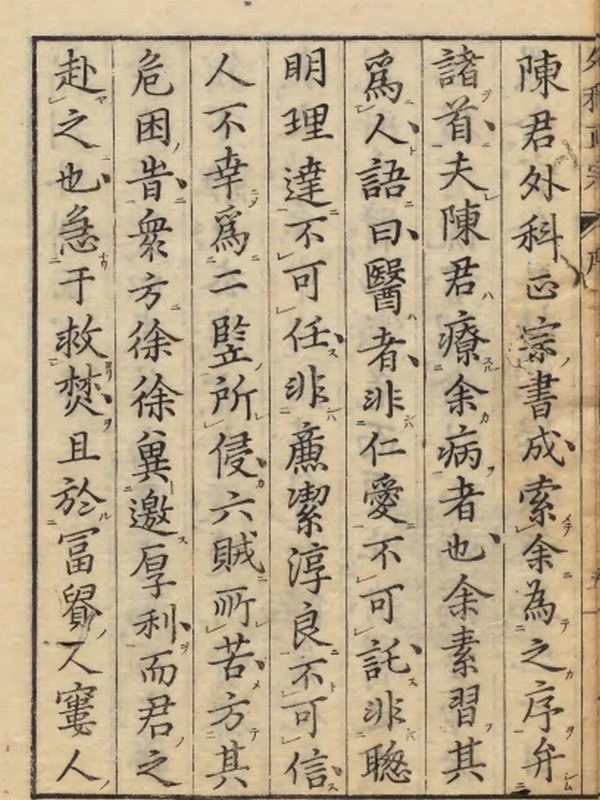 外科正宗
陳君外科正宗書成索余為之序弁
諸首夫陳君療余病者也余素習其
爲人語曰醫者非仁愛不可託非聰
眀理達不可任非廉潔淳良不可信
人不幸爲二竪所侵六賊所苦方其
危困旹衆方徐徐冀邀厚利而君之
赴之也急于救焚且於冨貴人窶人